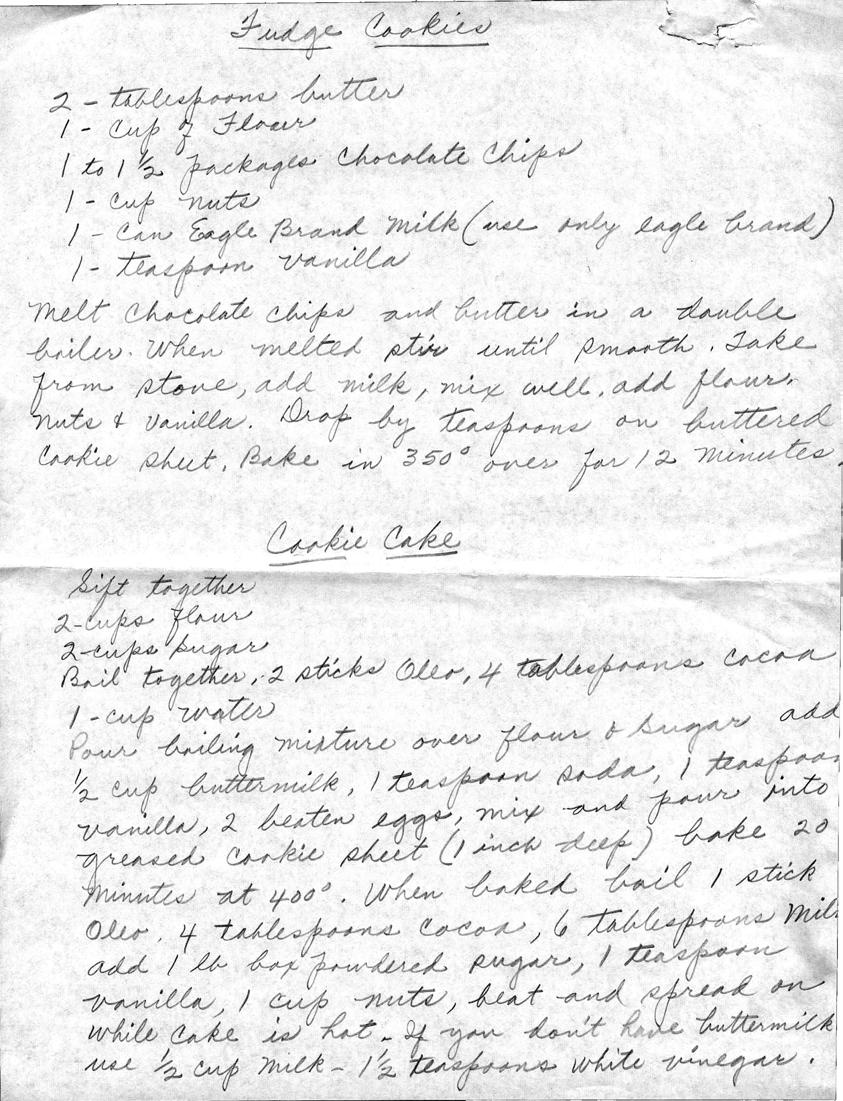 Fudge Cookies
2 - tablespoons butter
1 - Cup of Flour
1 to 1 ½ packages Chocolate Chips
1 - cup nuts
1 - Can Eagle Brand Milk (use only eagle brand)
1 - teaspoon vanilla
Melt Chocolate Chips and butter in a double
boiler. When melted stir until smooth. Take
from stove, add milk, mix well, add flour,
nuts & vanilla. Drop by teaspoons on buttered
Cookie sheet. Bake in 350° over for 12 minutes.
Cookie Cake
Sift together
2-cups flour
2-cups sugar
Boil together, 2 sticks Oleo, 4 tablespoons cocoa
1-cup water
Pour boiling mixture over flour & sugar add
½ cup buttermilk, 1 teaspoon soda, 1 teaspoon
vanilla, 2 beaten eggs, mix and pour into
greased cookie sheet (1 inch deep) bake 20
minutes at 400°. When baked boil 1 stick
Oleo, 4 tablespoons cocoa, 6 tablespoons Milk
add 1 lb box powdered sugar, 1 teaspoon
vanilla, 1 cup nuts, beat and spread on
while cake is hot. If you don't have buttermilk
use ½ cup milk - 1½ teaspoons white vinegar.